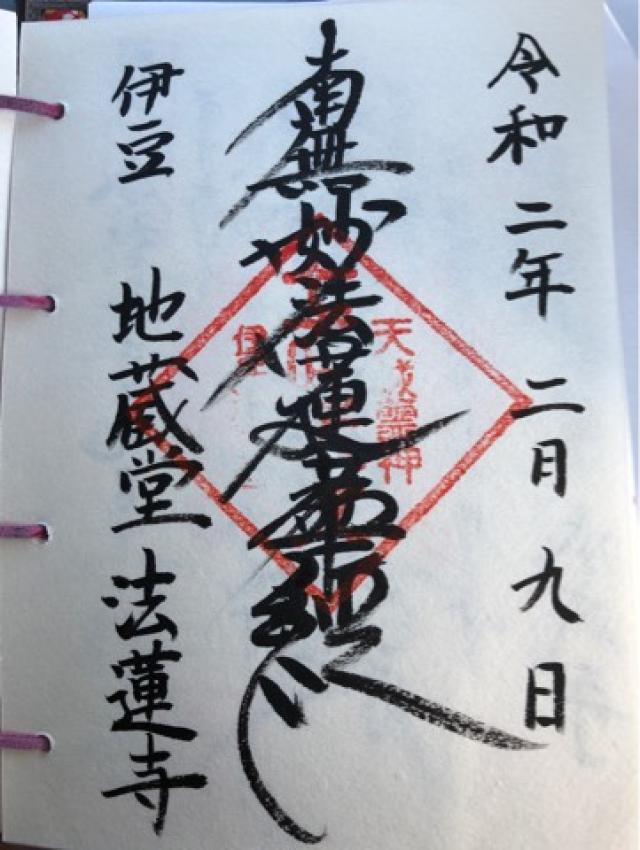 令和二年二月九日
南無妙法蓮華経
伊豆 地蔵堂 法蓮寺
天
霊神
伊